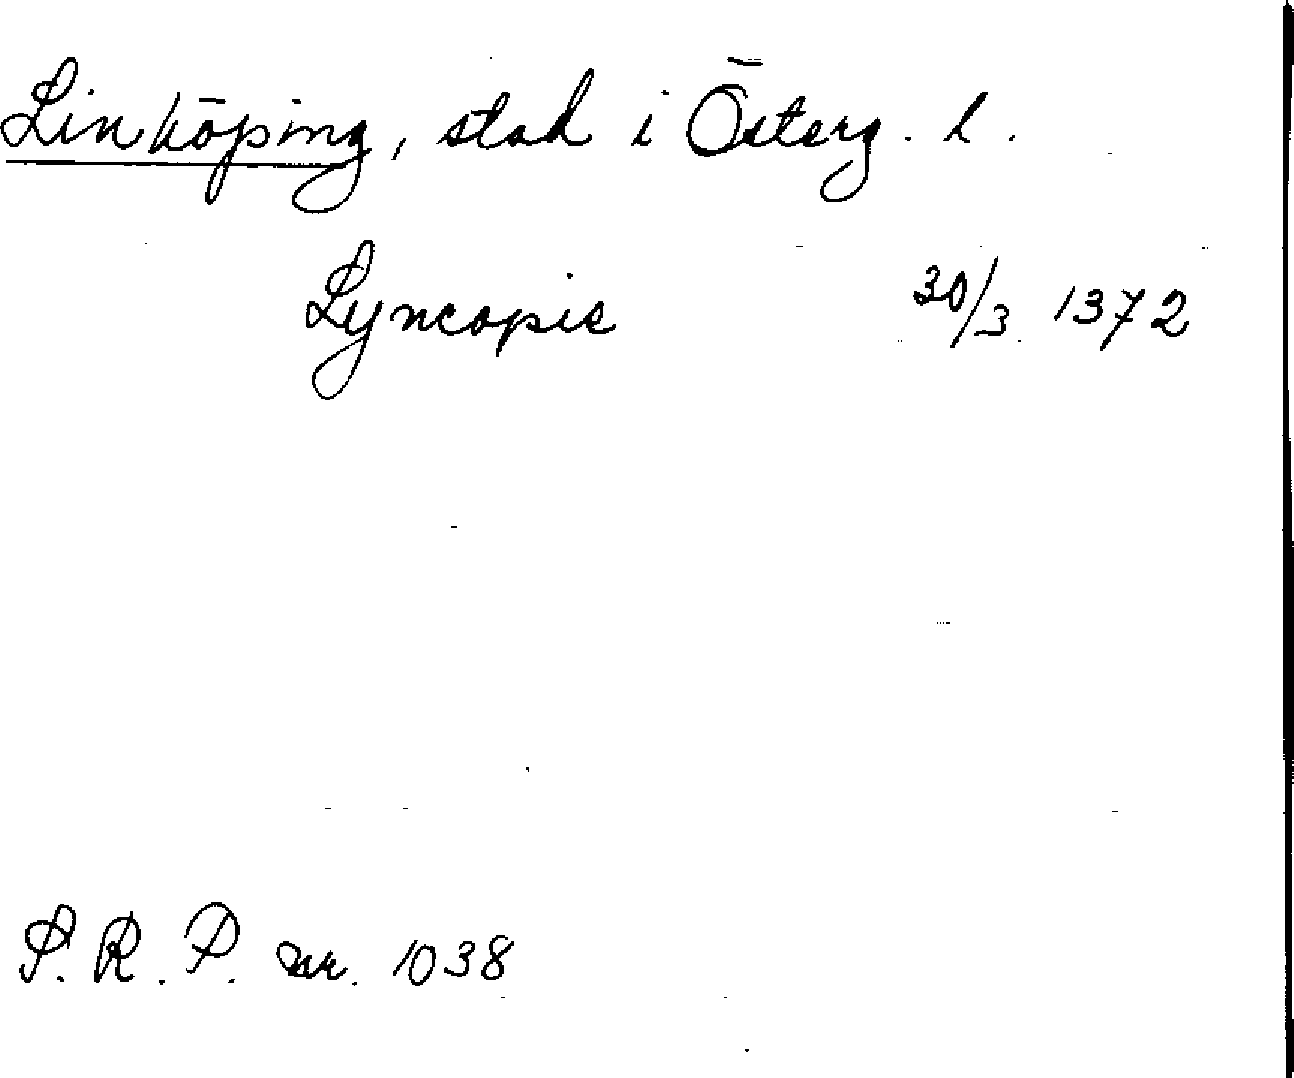 Linköping, stad i Österg. l.
Lyncopie 30/3 1372
S. R. P. nr. 1038